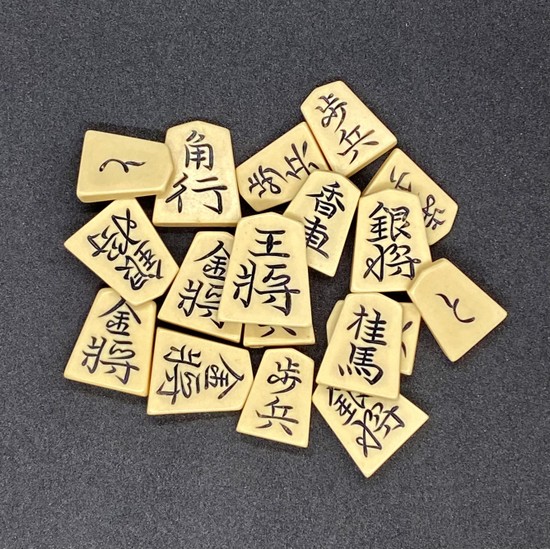 歩兵
と
角行
歩兵
香車
歩
銀将
銀将
王将
金将
と
金将
兵
桂馬
金将
歩兵
銀将